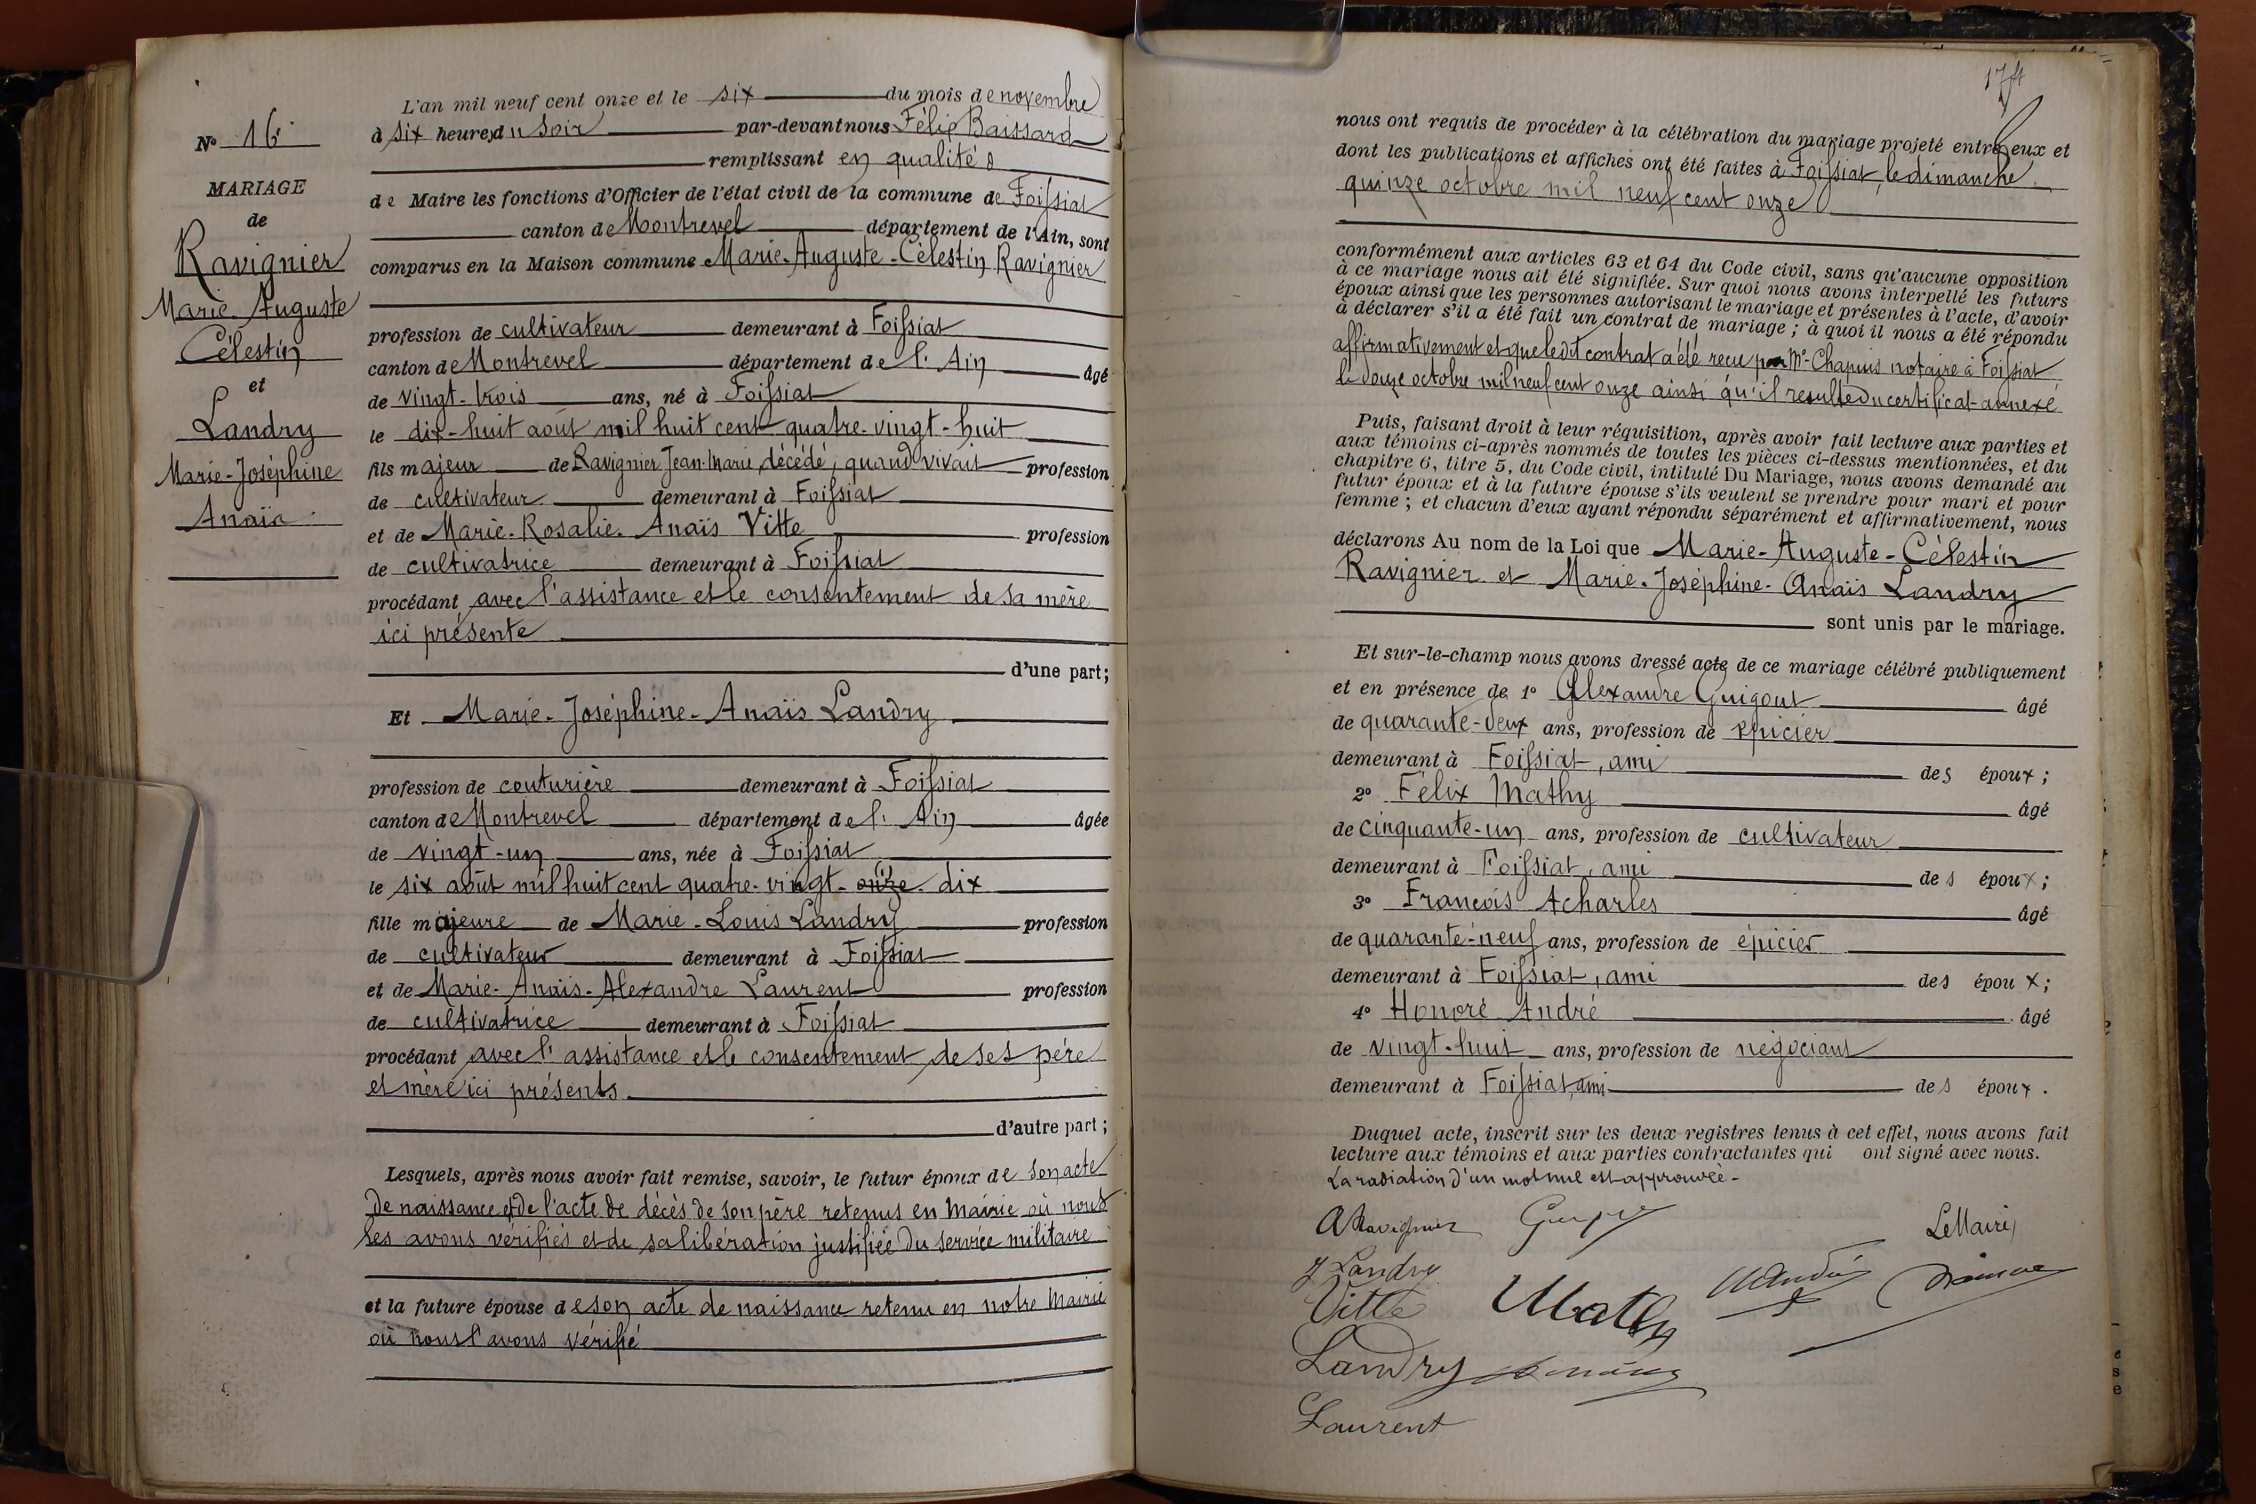 N° 16
MARIAGE
de
Ravignier
Marie-Auguste
Célestin
et
Landry
Marie-Joséphine
Anaïs
L'an mil neuf cent onze et le six du mois de novembre
à six heures du soir par-devant nous Félix
remplissant en qualités
de Maire les fonctions d'Officier de l'état civil de la commune de Foissiat
canton de Montrevel département de l'Ain, sont
comparus en la Maison commune Marie-Auguste-Célestin Ravignier
profession de cultivateur demeurant à Foissiat
canton de Montrevel département de l'Ain âgé
de vingt-trois ans, né à Foissiat
le dix-huit août mil huit cent quatre-vingt-huit
fils majeur de Ravignier Jean-Marie, décédé, quand vivait profession
de cultivateur demeurant à Foissiat
et de Marie-Rosalie-Anaïs Vitte profession
de cultivatrice demeurant à Foissiat
procédant avec l'assistance et le consentement de sa mère
ici présente
d'une part;
Et Marie-Joséphine-Anaïs Landry
profession de couturière demeurant à Foissiat
canton de Montrevel département de l'Ain âgée
de vingt-un ans, née à Foissiat
le six août mil huit cent quatre-vingt-onze-dix
fille majeure de Marie-Louis Landry profession
de cultivateur demeurant à Foissiat
et de Marie-Anaïs-Alexandre Laurent profession
de cultivatrice demeurant à Foissiat
procédant avec l'assistance et le consentement de ses père
et mère ici présents
d'autre part;
Lesquels, après nous avoir fait remise, savoir, le futur époux de son acte
de naissance et de l'acte de décès de son père retenus en Mairie où nous
les avons vérifiés et de sa libération justifiée du service militaire
et la future épouse de son acte de naissance retenu en notre Mairie
où nous l'avons vérifié
174
nous ont requis de procéder à la célébration du mariage projeté entre eux et
dont les publications et affiches ont été faites à Foissiat, le dimanche
quinze octobre mil neuf cent onze
conformément aux articles 63 et 64 du Code civil, sans qu'aucune opposition
à ce mariage nous ait été signifiée. Sur quoi nous avons interpellé les futurs
époux ainsi que les personnes autorisant le mariage et présentes à l'acte, d'avoir
à déclarer s'il a été fait un contrat de mariage; à quoi il nous a été répondu
affirmativement et que le dit contrat a été reçu par Me Chapuis notaire à Foissiat
le douze octobre mil neuf cent onze ainsi qu'il resulte du certificat annexé
Puis, faisant droit à leur réquisition, après avoir fait lecture aux parties et
aux témoins ci-après nommés de toutes les pièces ci-dessus mentionnées, et du
chapitre 6, titre 5, du Code civil, intitulé Du Mariage, nous avons demandé au
futur époux et à la future épouse s'ils veulent se prendre pour mari et pour
femme; et chacun d'eux ayant répondu séparément et affirmativement, nous
déclarons Au nom de la Loi que Marie-Auguste-Célestin
Ravignier et Marie-Joséphine-Anaïs Landry
sont unis par le mariage.
Et sur-le-champ nous avons dressé acte de ce mariage célébré publiquement
et en présence de 1° Alexandre Guigout âgé
de quarante-deux ans, profession de épicier
demeurant à Foissiat, ami des époux;
2° Félix Mathy âgé
de cinquante-un ans, profession de cultivateur
demeurant à Foissiat, ami des époux;
3° François Acharles âgé
de quarante-neuf ans, profession de épicier
demeurant à Foissiat, ami des époux;
4° Honoré André âgé
de vingt-huit ans, profession de négociant
demeurant à Foissiat, ami des époux.
Duquel acte, inscrit sur les deux registres tenus à cet effet, nous avons fait
lecture aux témoins et aux parties contractantes qui ont signé avec nous.
La radiation d'un mot nul est approuvée-
A Ravignier
Le Maire,
J Landry
Vitte
Mathy
H André
Landry
Laurent